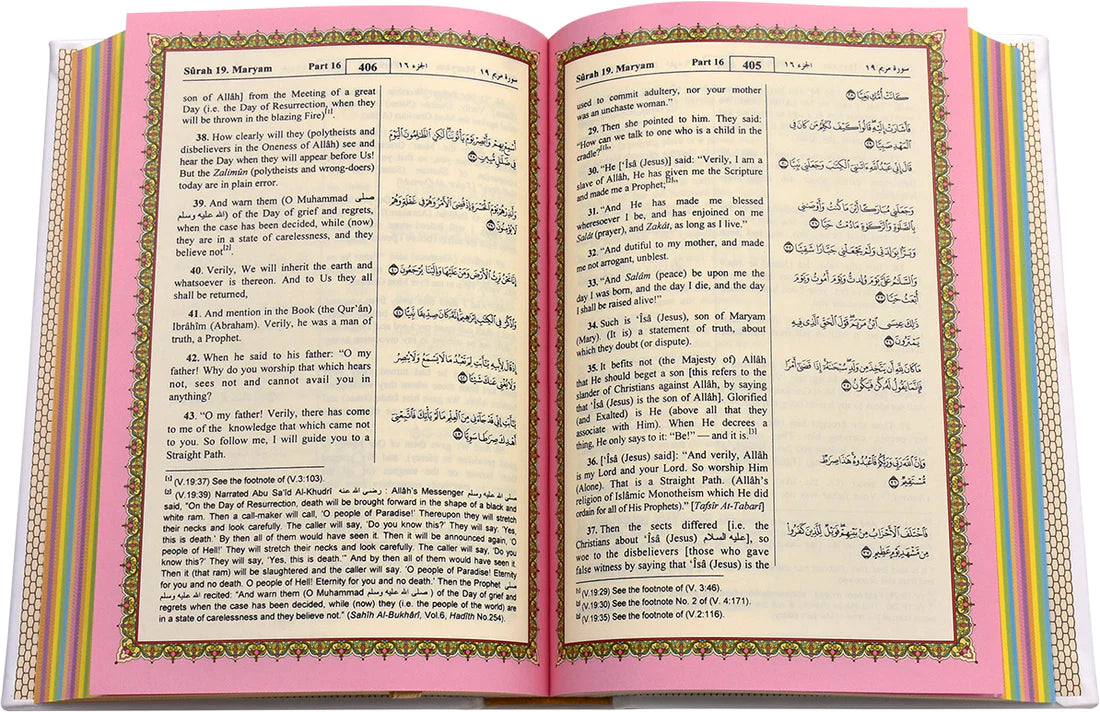 Sûrah 19. Maryam Part 16 405 الجزء ١٦ سورة مريم ١٩
used to commit adultery, nor your mother
was an unchaste woman.”
29. Then she pointed to him. They said:
“How can we talk to one who is a child in the
cradle?[1]”
30. “He [‘Îsâ (Jesus)] said: “Verily, I am a
slave of Allâh, He has given me the Scripture
and made me a Prophet;[2]”
31. “And He has made me blessed
wheresoever I be, and has enjoined on me
Salât (prayer), and Zakât, as long as I live.”
32. “And dutiful to my mother, and made
me not arrogant, unblest.
33. “And Salâm (peace) be upon me the
day I was born, and the day I die, and the day
I shall be raised alive!”
34. Such is ‘Îsâ (Jesus), son of Maryam
(Mary). (It is) a statement of truth, about
which they doubt (or dispute).
35. It befits not (the Majesty of) Allâh
that He should beget a son [this refers to the
slander of Christians against Allâh, by saying
that ‘Îsâ (Jesus) is the son of Allâh]. Glorified
(and Exalted) is He (above all that they
associate with Him). When He decrees a
thing, He only says to it: “Be!” — and it is.[3]
36. [‘Îsâ (Jesus) said]: “And verily, Allâh
is my Lord and your Lord. So worship Him
(Alone). That is a Straight Path. (Allâh’s
religion of Islâmic Monotheism which He did
ordain for all of His Prophets).” [Tafsir At-Tabarî]
37. Then the sects differed [i.e. the
Christians about ‘Îsâ (Jesus) عليه السلام], so
woe to the disbelievers [those who gave
false witness by saying that ‘Îsâ (Jesus) is the
كَانَتْ أُمُّكِ بَغِيًّا ٢٨
فَأَشَارَتْ إِلَيْهِ قَالُوا كَيْفَ نُكَلِّمُ مَن كَانَ فِي
الْمَهْدِ صَبِيًّا ٢٩
قَالَ إِنِّي عَبْدُ اللَّهِ ءَاتَىٰنِيَ الْكِتَٰبَ وَجَعَلَنِي نَبِيًّا ٣٠
وَجَعَلَنِي مُبَارَكًا أَيْنَ مَا كُنتُ وَأَوْصَٰنِي
بِالصَّلَوٰةِ وَالزَّكَوٰةِ مَا دُمْتُ حَيًّا ٣١
وَبَرًّا بِوَٰلِدَتِي وَلَمْ يَجْعَلْنِي جَبَّارًا شَقِيًّا ٣٢
وَالسَّلَٰمُ عَلَيَّ يَوْمَ وُلِدتُّ وَيَوْمَ أَمُوتُ وَيَوْمَ
أُبْعَثُ حَيًّا ٣٣
ذَٰلِكَ عِيسَى ابْنُ مَرْيَمَ قَوْلَ الْحَقِّ الَّذِي فِيهِ
يَمْتَرُونَ ٣٤
مَا كَانَ لِلَّهِ أَن يَتَّخِذَ مِن وَلَدٍ سُبْحَٰنَهُ إِذَا قَضَىٰ أَمْرًا
فَإِنَّمَا يَقُولُ لَهُ كُن فَيَكُونُ ٣٥
وَإِنَّ اللَّهَ رَبِّي وَرَبُّكُمْ فَاعْبُدُوهُ هَٰذَا صِرَٰطٌ
مُّسْتَقِيمٌ ٣٦
فَاخْتَلَفَ الْأَحْزَابُ مِن بَيْنِهِمْ فَوَيْلٌ لِّلَّذِينَ كَفَرُوا
مِن مَّشْهَدِ يَوْمٍ عَظِيمٍ ٣٧
[1] (V.19:29) See the footnote of (V. 3:46).
[2] (V.19:30) See the footnote No. 2 of (V. 4:171).
[3] (V.19:35) See the footnote of (V.2:116).
Sûrah 19. Maryam Part 16 406 الجزء ١٦ سورة مريم ١٩
son of Allâh] from the Meeting of a great
Day (i.e. the Day of Resurrection, when they
will be thrown in the blazing Fire)[1].
38. How clearly will they (polytheists and
disbelievers in the Oneness of Allâh) see and
hear the Day when they will appear before Us!
But the Zalimûn (polytheists and wrong-doers)
today are in plain error.
39. And warn them (O Muhammad صلى
الله عليه وسلم) of the Day of grief and regrets,
when the case has been decided, while (now)
they are in a state of carelessness, and they
believe not[2].
40. Verily, We will inherit the earth and
whatsoever is thereon. And to Us they all
shall be returned,
41. And mention in the Book (the Qur’ân)
Ibrâhîm (Abraham). Verily, he was a man of
truth, a Prophet.
42. When he said to his father: “O my
father! Why do you worship that which hears
not, sees not and cannot avail you in
anything?
43. “O my father! Verily, there has come
to me of the knowledge that which came not
to you. So follow me, I will guide you to a
Straight Path.
أَسْمِعْ بِهِمْ وَأَبْصِرْ يَوْمَ يَأْتُونَنَا لَٰكِنِ الظَّٰلِمُونَ الْيَوْمَ
فِي ضَلَٰلٍ مُّبِينٍ ٣٨
وَأَنذِرْهُمْ يَوْمَ الْحَسْرَةِ إِذْ قُضِيَ الْأَمْرُ وَهُمْ فِي غَفْلَةٍ وَهُمْ
لَا يُؤْمِنُونَ ٣٩
إِنَّا نَحْنُ نَرِثُ الْأَرْضَ وَمَنْ عَلَيْهَا وَإِلَيْنَا يُرْجَعُونَ ٤٠
وَاذْكُرْ فِي الْكِتَٰبِ إِبْرَٰهِيمَ إِنَّهُ كَانَ صِدِّيقًا نَّبِيًّا ٤١
إِذْ قَالَ لِأَبِيهِ يَٰأَبَتِ لِمَ تَعْبُدُ مَا لَا يَسْمَعُ وَلَا يُبْصِرُ
وَلَا يُغْنِي عَنكَ شَيْئًا ٤٢
يَٰأَبَتِ إِنِّي قَدْ جَاءَنِي مِنَ الْعِلْمِ مَا لَمْ يَأْتِكَ فَاتَّبِعْنِي
أَهْدِكَ صِرَٰطًا سَوِيًّا ٤٣
[1] (V.19:37) See the footnote of (V.3:103).
[2] (V.19:39) Narrated Abu Sa‘îd Al-Khudrî رضى الله عنه : Allâh’s Messenger صلى الله عليه وسلم
said, “On the Day of Resurrection, death will be brought forward in the shape of a black and
white ram. Then a call-maker will call, ‘O people of Paradise!’ Thereupon they will stretch
their necks and look carefully. The caller will say, ‘Do you know this?’ They will say. ‘Yes,
this is death.’ By then all of them would have seen it. Then it will be announced again, ‘O
people of Hell!’ They will stretch their necks and look carefully. The caller will say, ‘Do you
know this?’ They will say, ‘Yes, this is death.’” And by then all of them would have seen it.
Then it (that ram) will be slaughtered and the caller will say. ‘O people of Paradise! Eternity
for you and no death. O people of Hell! Eternity for you and no death.’ Then the Prophet صلى
الله عليه وسلم recited: “And warn them (O Muhammad صلى الله عليه وسلم ) of the Day of grief and
regrets when the case has been decided, while (now) they (i.e. the people of the world) are
in a state of carelessness and they believe not.” (Sahîh Al-Bukhârî, Vol.6, Hadîth No.254).